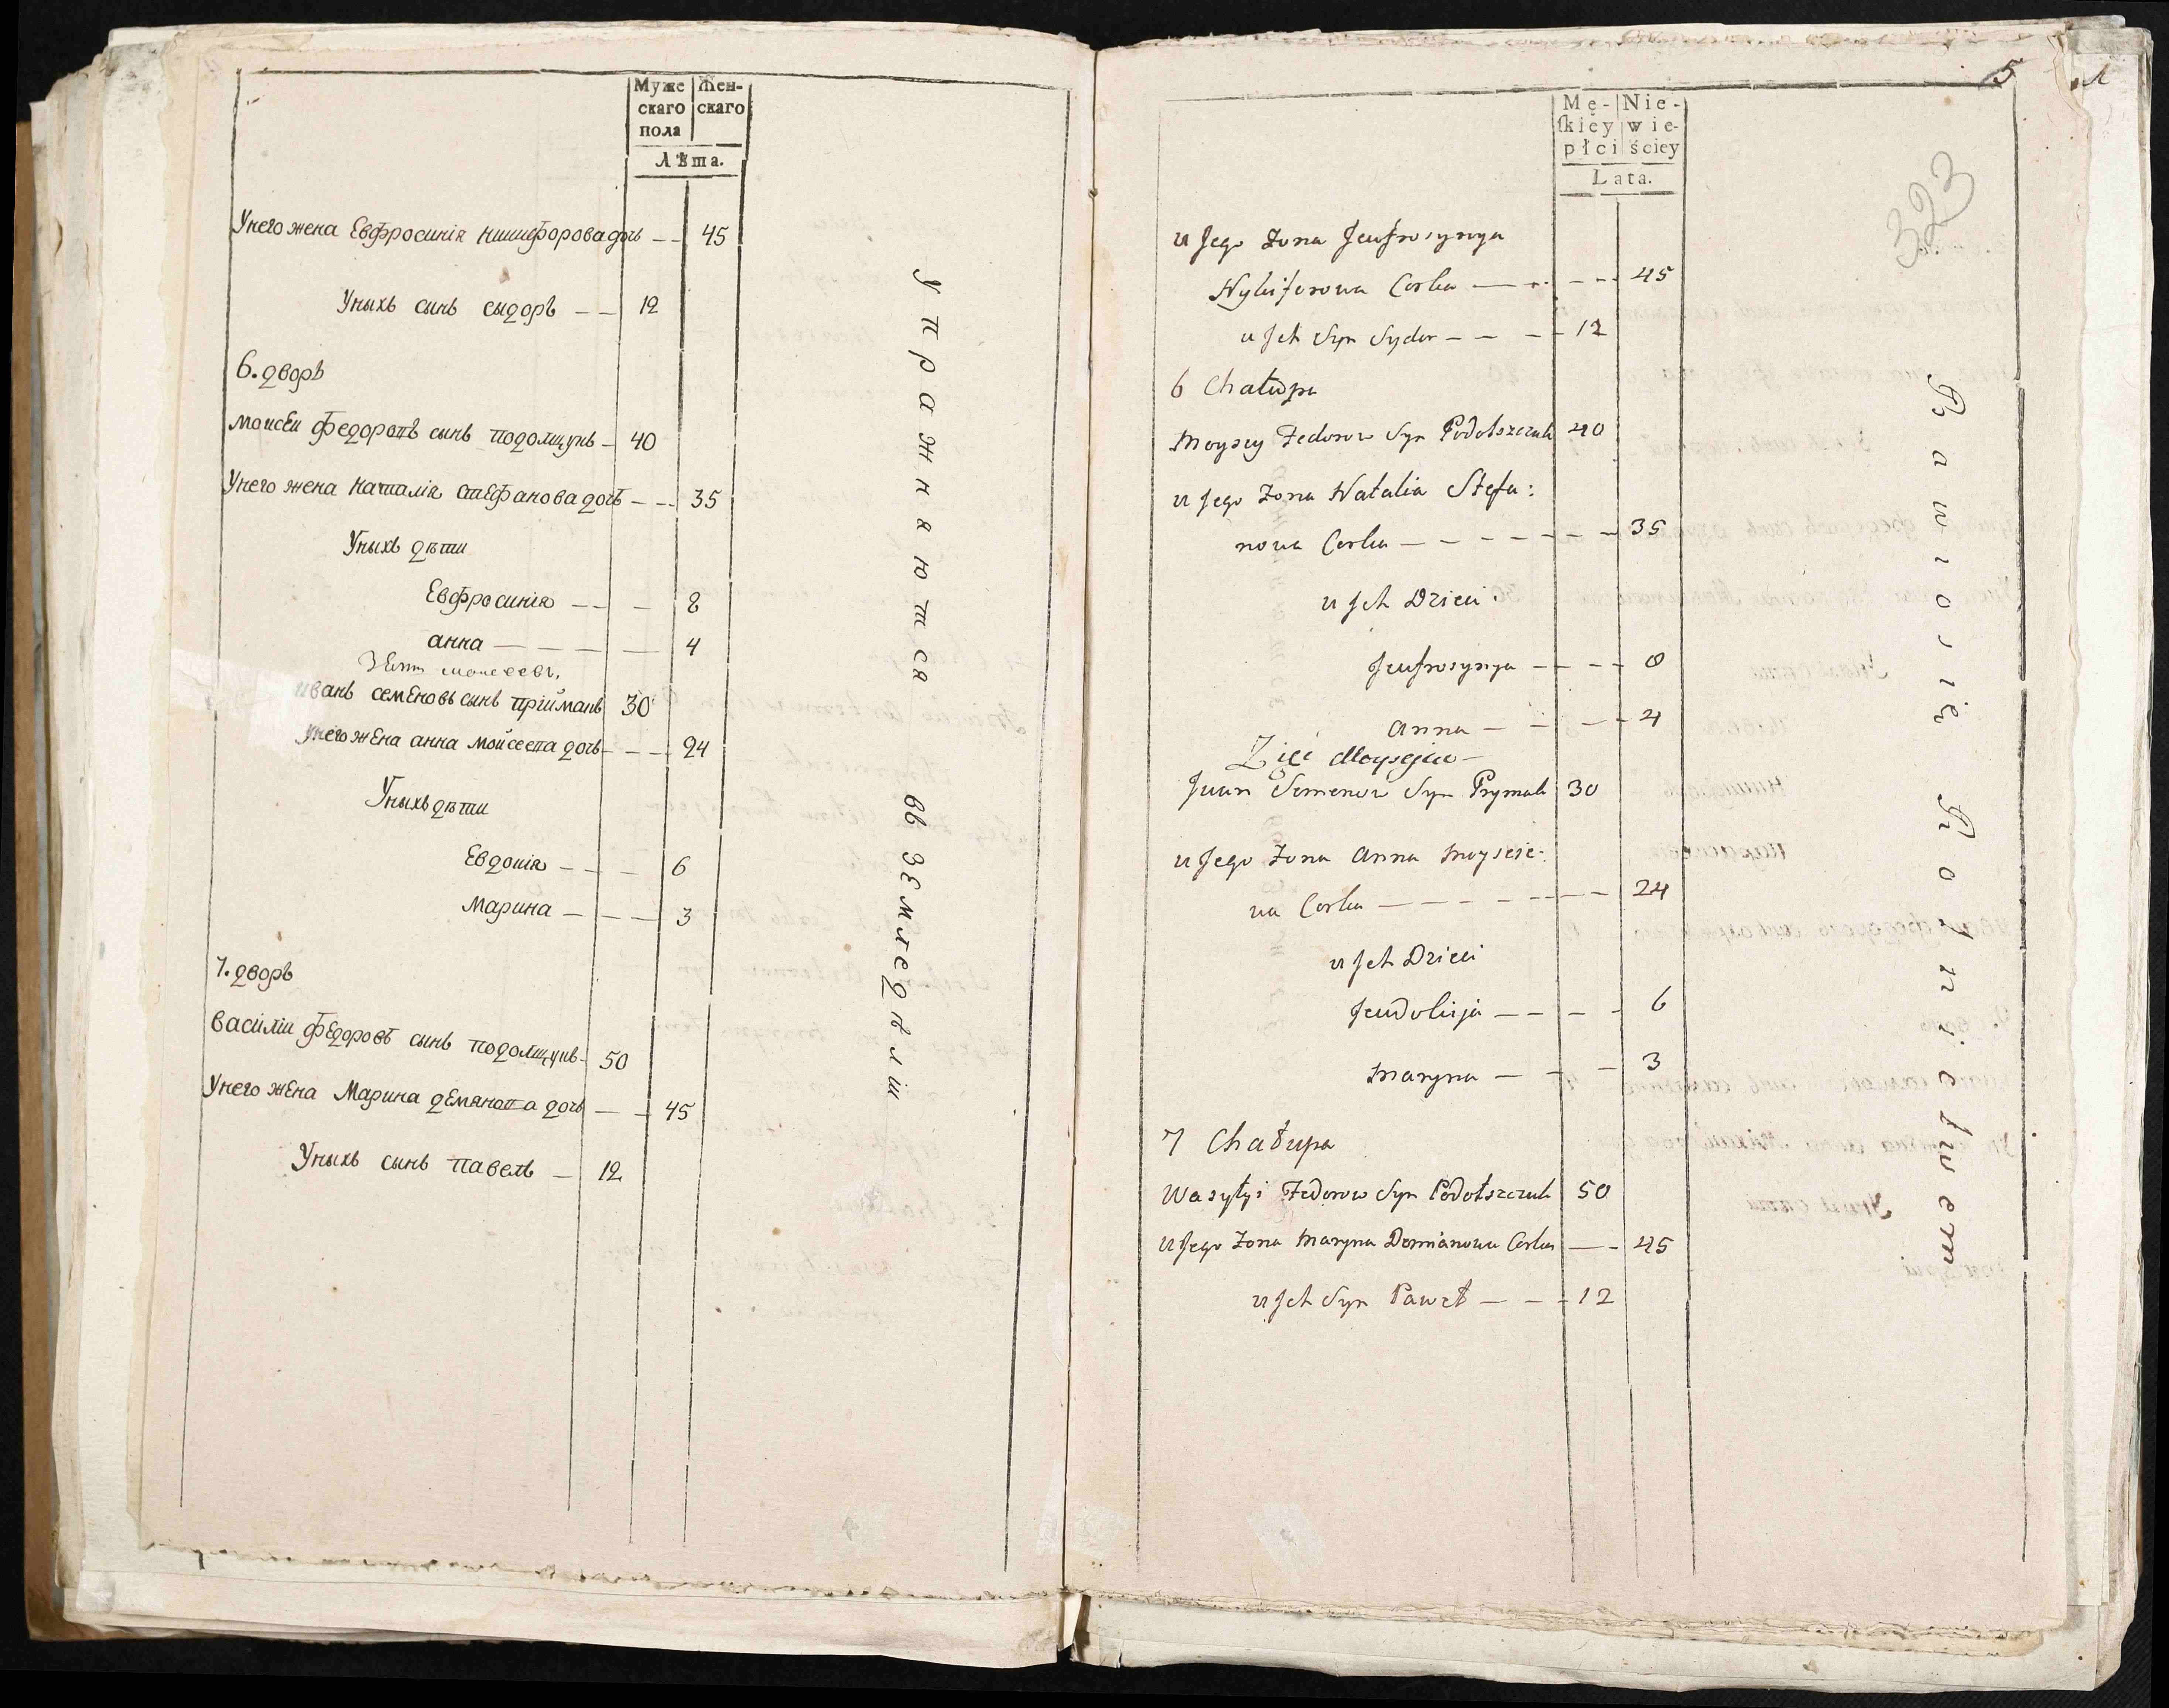 Муже Жен-
скаго скаго
пола
Лѣта.
Унего жена Евфросиния никифорова дочь — — 45
Уныхъ сынъ сыдоръ — — 12
6. дворъ
моисеи федоровъ сынъ подолщукъ — 40
Унего жена наталія стефанова дочь — — 35
Уныхъ дѣти
Евфросинія — — — 8
анна — — — — — 4
Зеть моисеевъ,
иванъ семеновъ сынъ пріймакъ 30
унего жена анна мойсеева дочь — — — 24
Уныхъ дѣти
Евдокія — — — 6
марина — — — 3
7. дворъ
василіи федоровъ сынъ подолщукъ — 50
Унего жена Марина демянова дочь — — 45
Уныхъ сынъ павелъ — 12
Упражняются въ земледѣліи
5
323
Mę- Nie-
ſkiéy wie-
płci ściey
Lata.
u Jego Zona Jeufrosynya
Nykiforowa Corka — — — — 45
u Jch Syn Sydor — — — 12
6 Chałupa
Moysey Fedorow Syn Podolszczuk 40
u Jego Zona Natalia Stefa:
nowa Corka — — — — — — — 35
u Jch Dzieci
Jeufrosynya — — — — 8
Anna — — — — 4
Zięć Moysejiw —
Jwan Semenow Syn Prymak 30
u Jego Zona Anna Moyseie-
wa Corka — — — — — — — 24
u Jch Dzieci
Jeudokija — — — — 6
Maryna — — — 3
7 Chałupa
Wasyłyi Fedorow Syn Podolszczuk 50
u Jego Zona Maryna Demianowa Corka — — 45
u Jch Syn Paweł — — — 12
Bawio się Rolnictwem